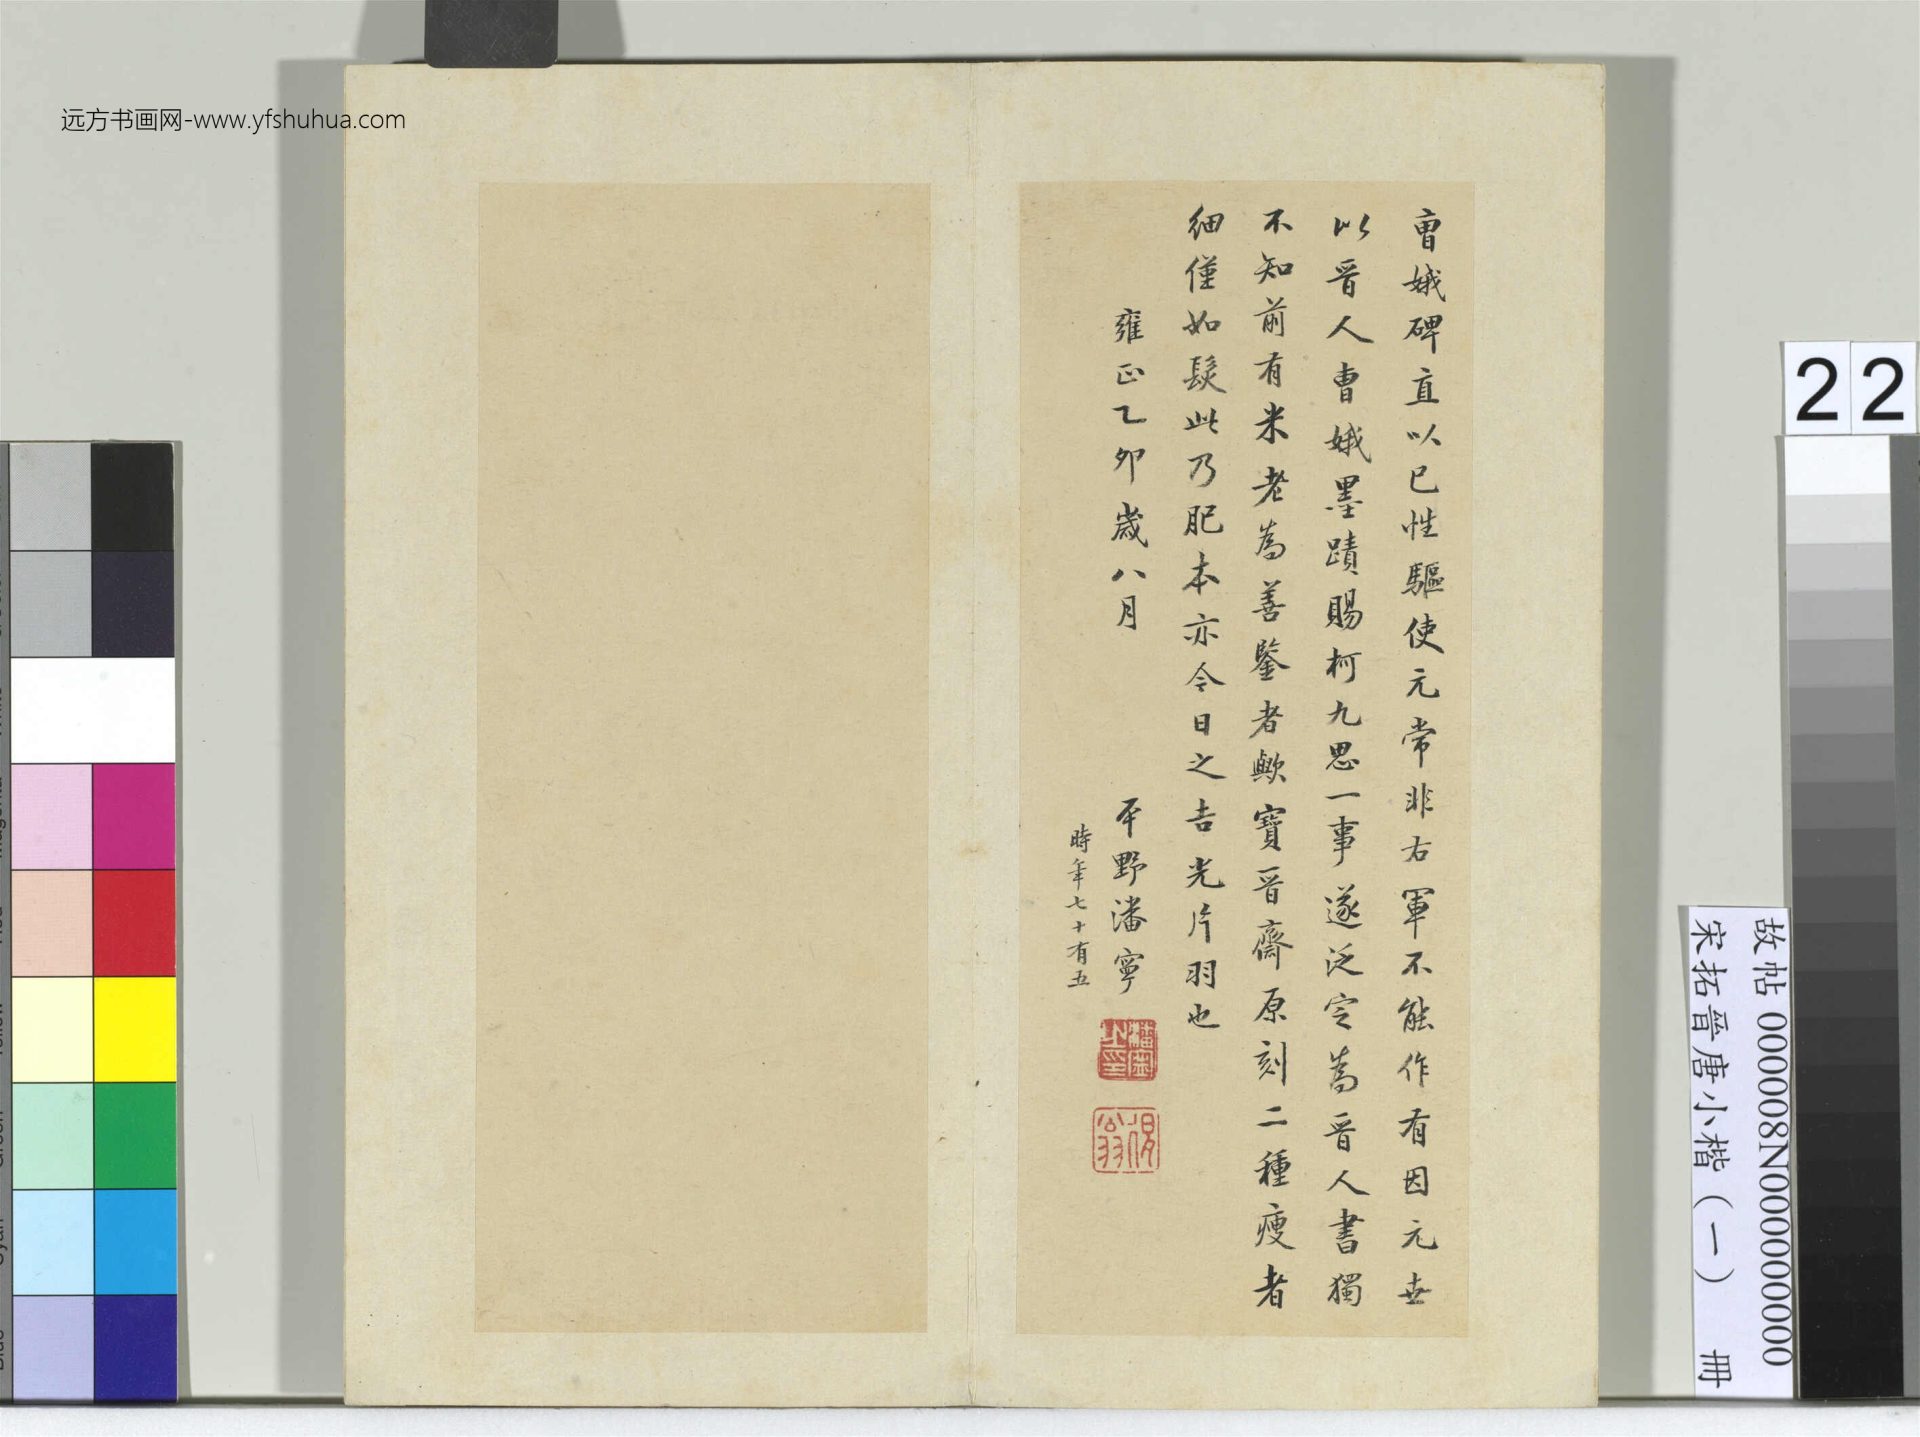 远方书画网-www.yfshuhua.com
曺娥碑直以已性驅使元常非右軍不能作有因元世
以晋人曹娥墨蹟賜柯九思一事遂泛定為晋人書獨
不知前有米老為善鑒者歟寶晋齋原刻二種瘦者
細僅如髮此乃肥本亦今日之吉光片羽也
雍正乙卯歲八月
平野潘寧
時年七十有五
潘寧之印
22
故帖 000008N000000000
宋拓晋唐小楷（一） 冊